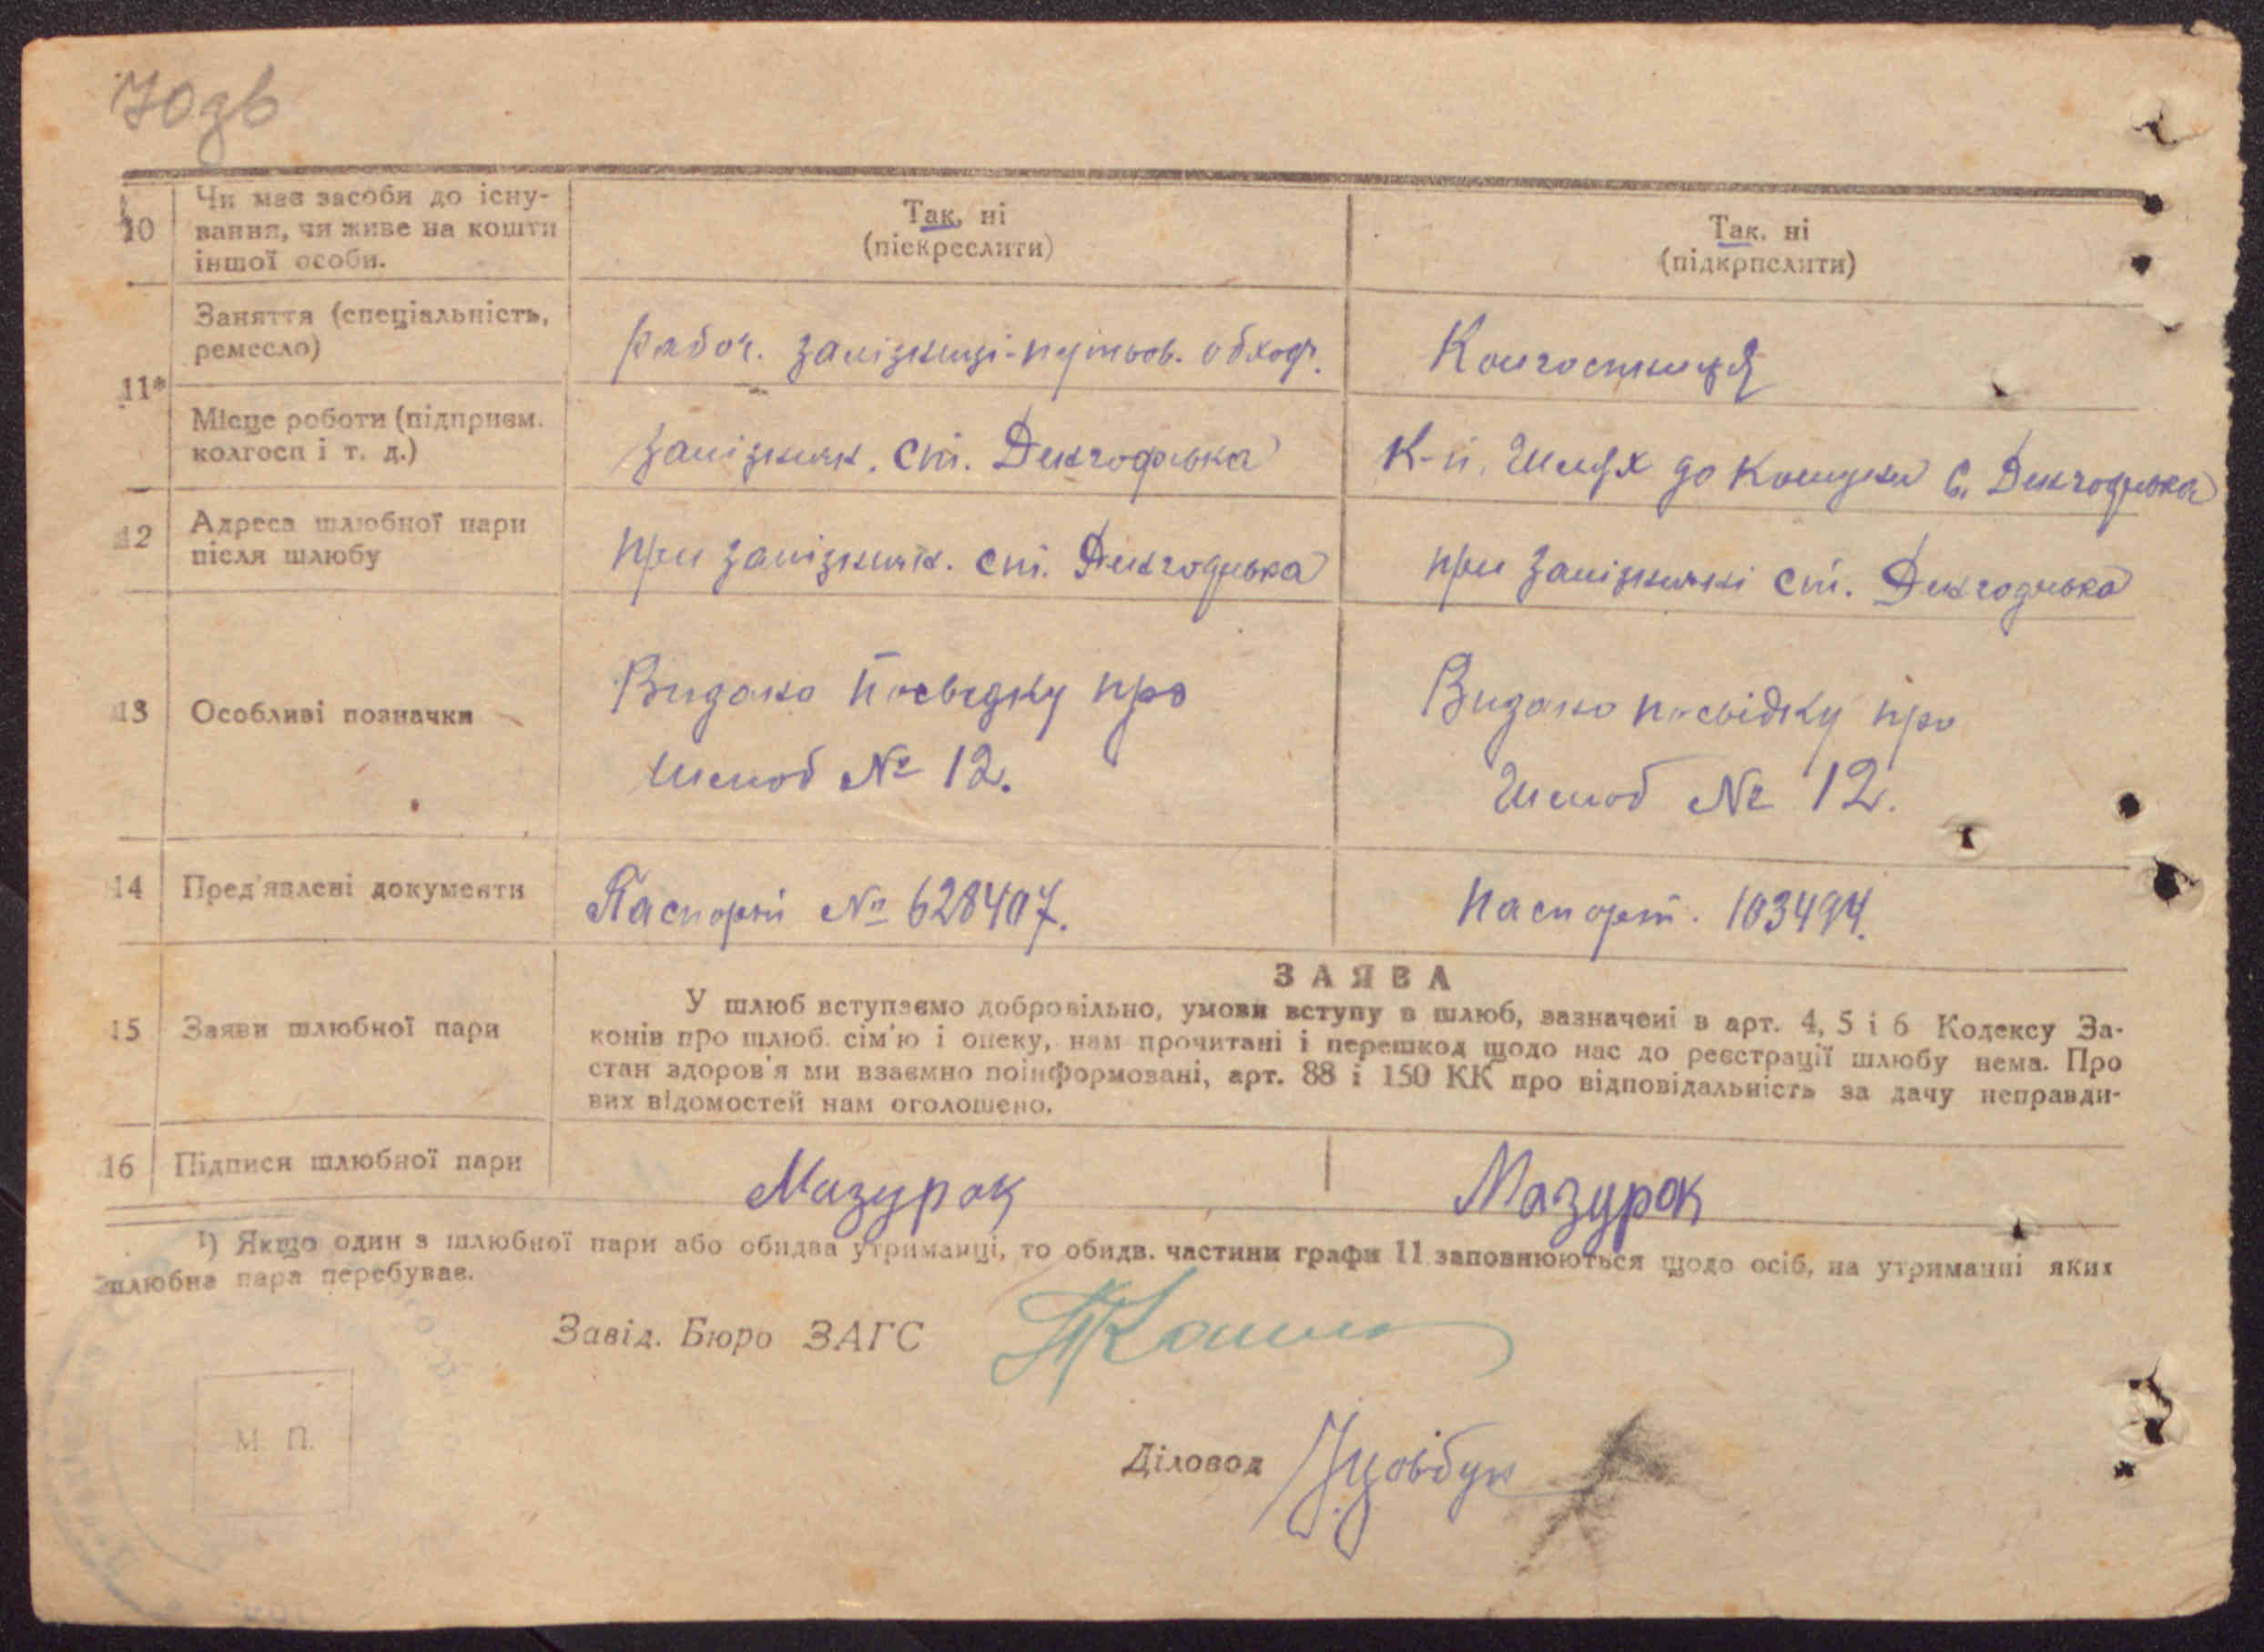 70зв
10
Чи має засоби до існу-
вання, чи живе на кошти
іншої особи.
Так, ні
(піекреслити)
Так, ні
(підкрпслити)
11*
Заняття (спеціальність,
ремесло)
Рабоч. залізниці-путьов. обход.
Колгоспниця
Місце роботи (підприєм.
колгосп і т. д.)
Залізнич. ст. Дихгодська
К-п. Шлях до Комуни с.
12
Адреса шлюбної пари
після шлюбу
при залізнич. ст.
при залізничні ст.
13
Особливі позначки
Видано посведку про
шлюб № 12.
Видано посвідку про
Шлюб № 12.
14
Пред'явлені документи
Паспорт № 628407.
Паспорт. 103494.
15
Заяви шлюбної пари
ЗАЯВА
У шлюб вступаємо добровільно, умови вступу в шлюб, зазначені в арт. 4, 5 і 6 Кодексу За-
конів про шлюб. сім'ю і опеку, нам прочитані і перешкод щодо нас до реєстрації шлюбу нема. Про
стан здоров'я ми взаємно поінформовані, арт. 88 і 150 КК про відповідальність за дачу неправди-
вих відомостей нам оголошено.
16
Підписи шлюбної пари
Мазурок
Мазурок
¹) Якщо один з шлюбної пари або обидва утриманці, то обидв. частини графи 11 заповнюються щодо осіб, на утриманні яких
шлюбна пара перебуває.
Завід. Бюро ЗАГС
Діловод
М. П.